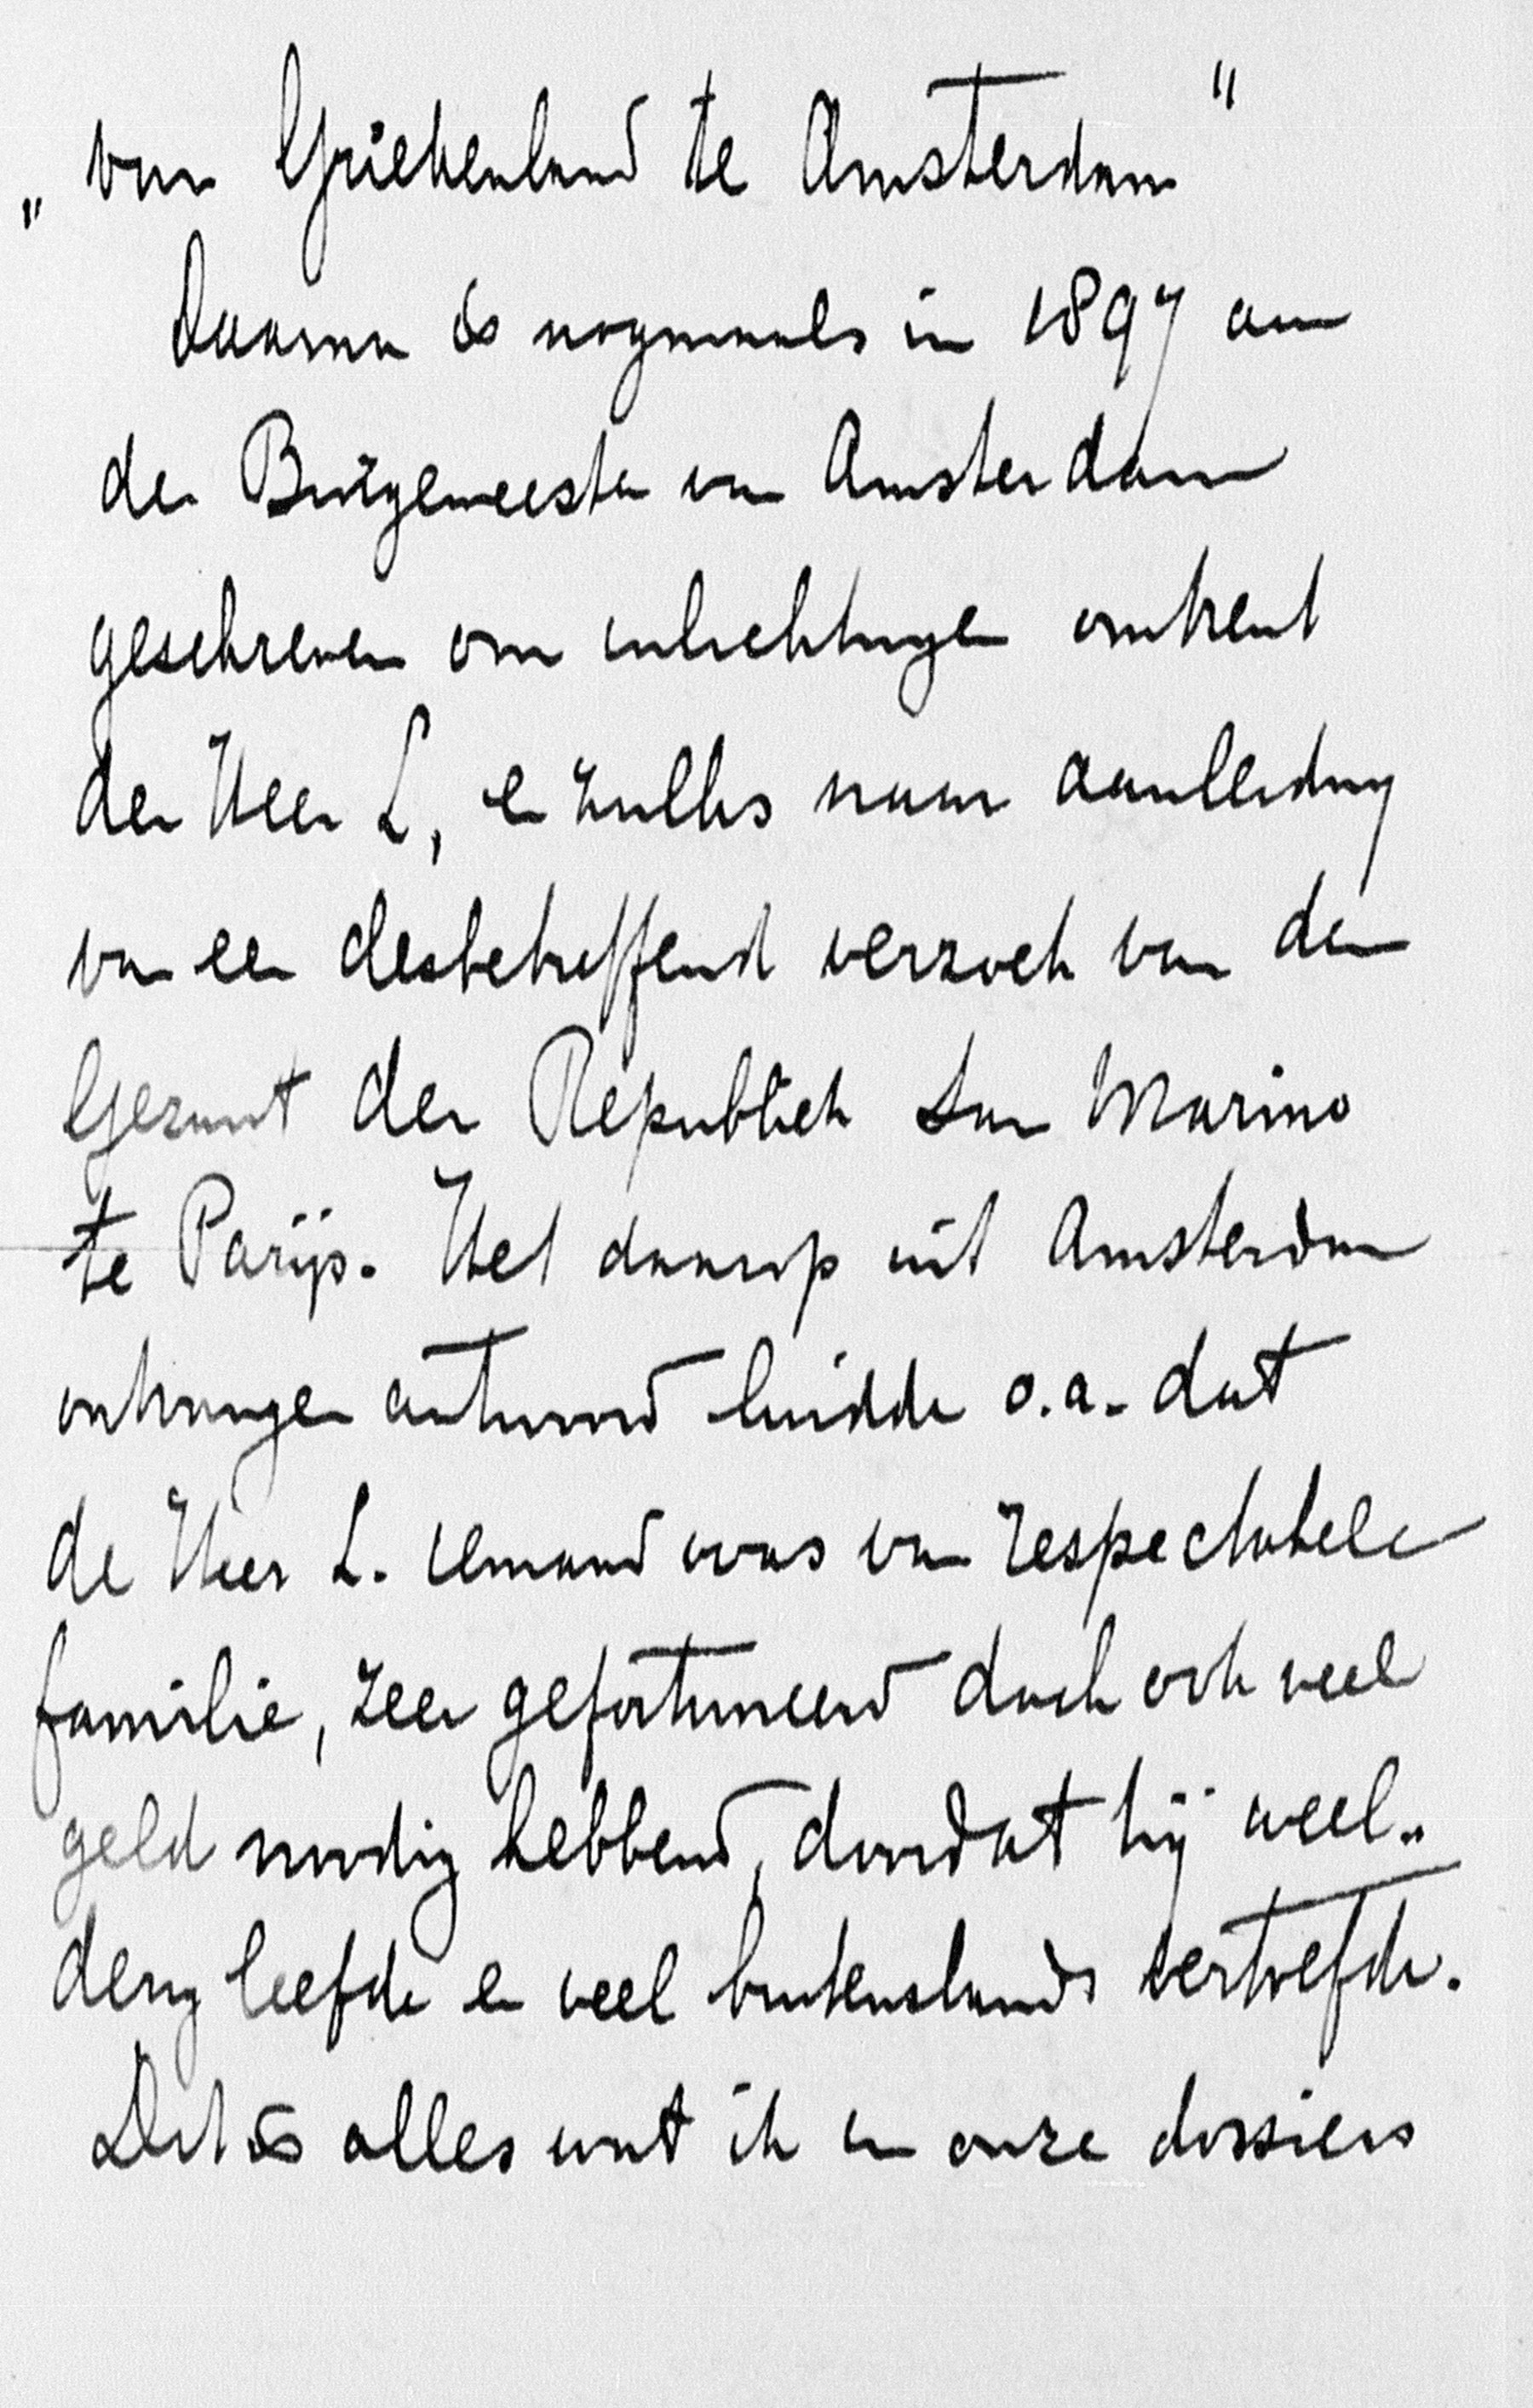 „van Griekenland te Amsterdam"
Daarna is nogmaals in 1897 aan
den Burgemeester van Amsterdam
geschreven om inlichtingen omtrent
den Heer L, en zulks naar aanleiding
van een desbetreffend verzoek van den
Gezant der Republiek San Marino
te Parijs. Het daarop uit Amsterdam
ontvangen antwoord luidde o.a. dat
de Heer L. iemand was van respectabele
familie, zeer gefortuneerd doch ook veel
geld noodig hebbend, doordat hij weel-
derig leefde en veel buitenslands vertoefde.
Dit is alles wat ik in onze dossiers